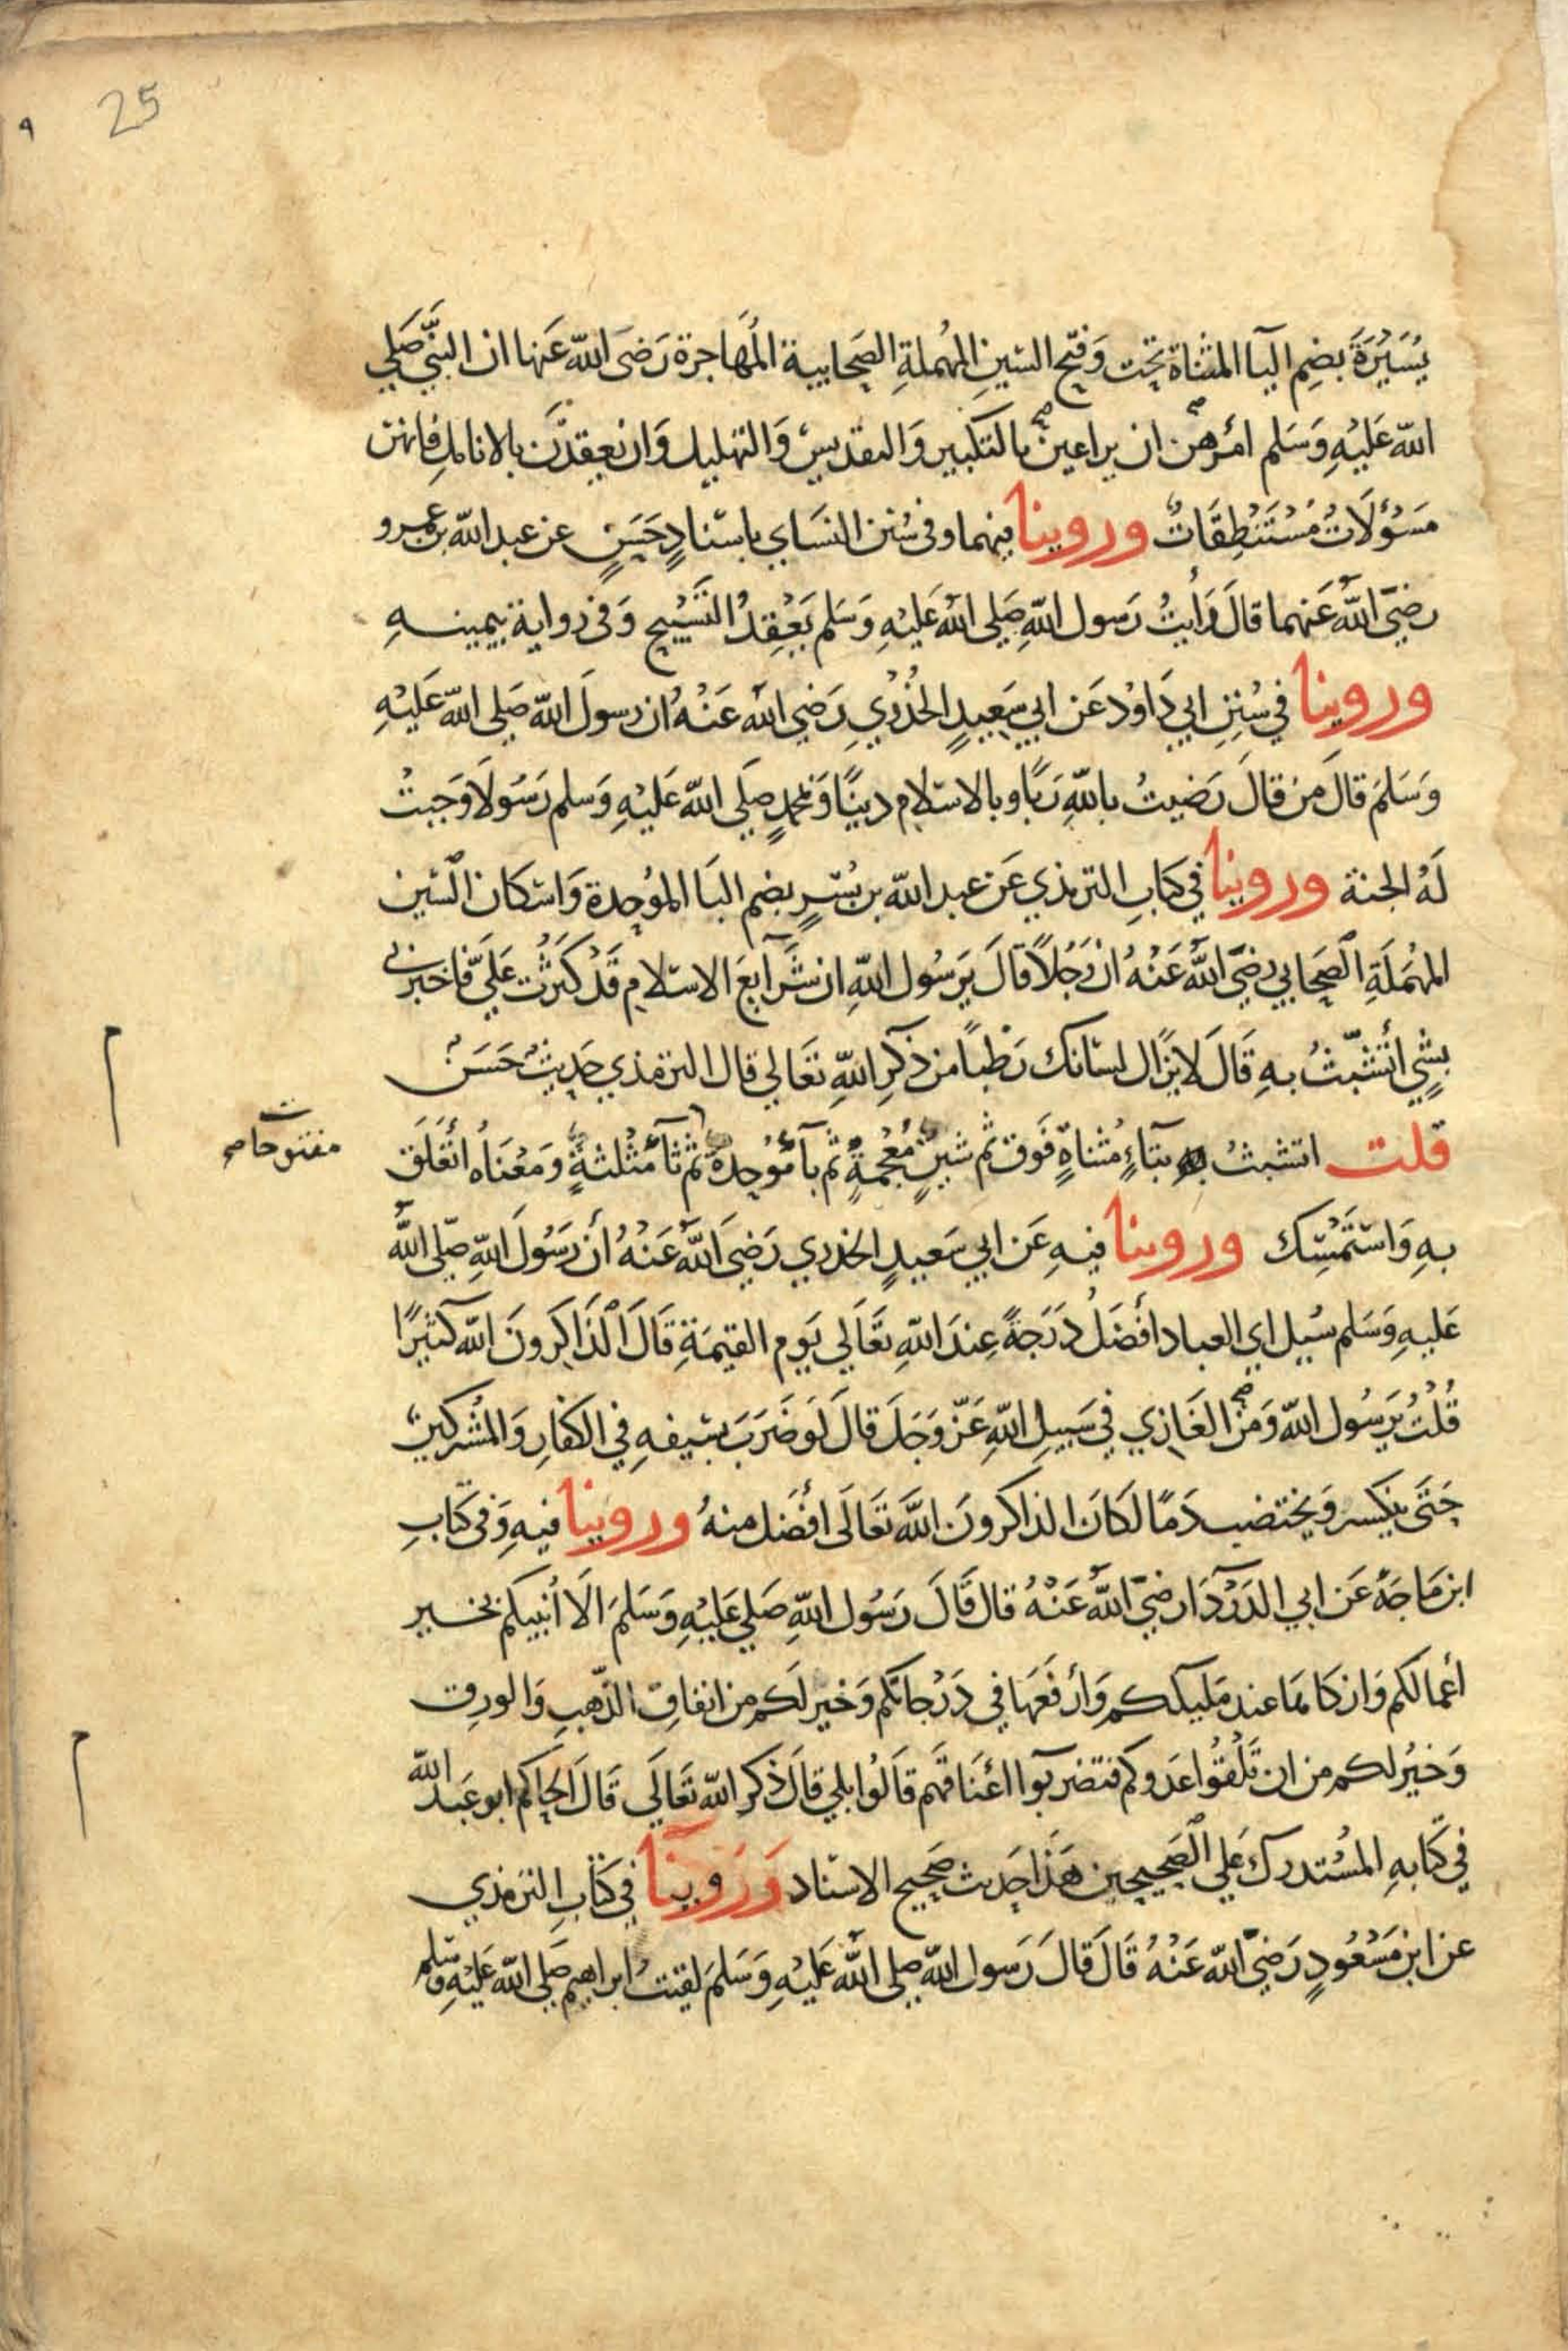 25
٩
يُسَيْرَةَ بضِم اليآ المثناة تحت وَفتح السينِ المهُملةِ الصَحابية المُهَاجرة رَضىَ الله عَنها ان النبَّي صَلي
الله عَليْهِ وَسَلم امَرهن ان يراعين بالتكبير وَالتقديس وَالتهليل وَان يعقِدَن بالانامِل فانهن
مَسؤُلَاتُ مُسْتَنْطِقَاتٌ وروينا فيهما وفى سُنن النسَاي باسنادٍ حَسَنٍ عن عبد الله بن عمرو
رضيَ اللهُ عَنهما قالَ رَأيتُ رَسول اللهِ صَلي الله عَليْهِ وَسَلم يَعْقِدُ التَسْبيح وَفى رواية بيمينهِ
وروينا في سُنَنِ ابي دَاوُد عَن ابي سَعِيدٍ الخُدْريِ رَضي الله عَنْهُ ان رسولَ الله صَلي الله عَليْهِ
وَسَلمَ قالَ مَن قالَ رَضيتُ باللهِ رَبًا وبالاسلامِ دينًا وَبمحمدٍ صَلَي الله عَليْهِ وَسلم رَسُولًا وَجبتْ
لَهُ الجنة وروينا في كتابِ الترمذي عَن عبد الله بن بُسْرٍ بضم البَا الموُحدة وَاسكان السّين
المهْمَلَةِ الصَحابي رضيَ اللهُ عَنْهُ انْ رَجُلاً قالَ يَرسُول اللهِ ان شَرَآيعَ الاسلامِ قَدْ كثرُتْ عَليَّ فاخبرني
بشيٍ أتشبّثُ بهِ قَالَ لا يزَال لسَانك رَطبًا من ذكرِ اللهِ تعَالي قال الترمذي حَديث حَسَن
قلت اتشبثُ به بتآءٍ مُثناةٍ فَوق ثم شينٍ مُعْجمةٍ ثم بآ مُوَحدةٌ ثم ثآ مُثلثةٍ وَمَعْنَاهُ اتعَلَق
مفتوحات صح
بهِ وَاسْتَمْسِك وروينا فيهِ عَن ابي سَعيدٍ الخدري رَضيَ اللهُ عَنْهُ أنْ رَسُولَ اللهِ صلي الله
عَليهِ وَسَلم سُيل اي العباد افضَلُ دَرَجةً عِندَ اللهِ تعَالَي يَوم القيمَةِ قَالَ الذَاكِرونَ الله كثيرًا
قُلتُ يَرسُول الله وَمن الغَازي في سَبيلِ اللهِ عَزّ وَجَل قالَ لوَ ضَرَبَ بسيفهِ في الكفارِ وَالمشركين
حَتىَ ينكسر وَيختضب دَمًا لَكَانَ الذاكرونَ اللهَ تعَالَى افضَل منهُ وروينا فيهِ وَفى كتابِ
ابن مَاجَهْ عَن ابي الدَرْدَآ رضيَ اللهُ عَنْهُ قال قَالَ رَسُول اللهِ صَلي عَليْهِ وَسَلمَ الَا أنبيكم بخير
أعمالكم وَازكاها عند مَليككم وَأرفَعَها في دَرَجاتكم وَخير لكم من انفاقِ الذّهبِ وَالورِق
وَخيرُ لكم من ان تَلْقُوا عَدوكم فتضربوا اعنَاقَهم قَالُوا بلي قالَ ذكر الله تعَالَي قَالَ الحاكم ابو عَبد الله
في كتابهِ المسُتدرك عَلي الصَحيحين هَذا حَديث صَحيح الاسناد وَرَوينا في كتابِ الترمذي
عن ابن مَسْعُودٍ رَضيَ الله عَنْهُ قَالَ قَالَ رَسول الله صلي اللهُ عَليْهِ وَسَلمَ لقيتُ ابراهيم صَلي الله عَليْهِ وَسلم